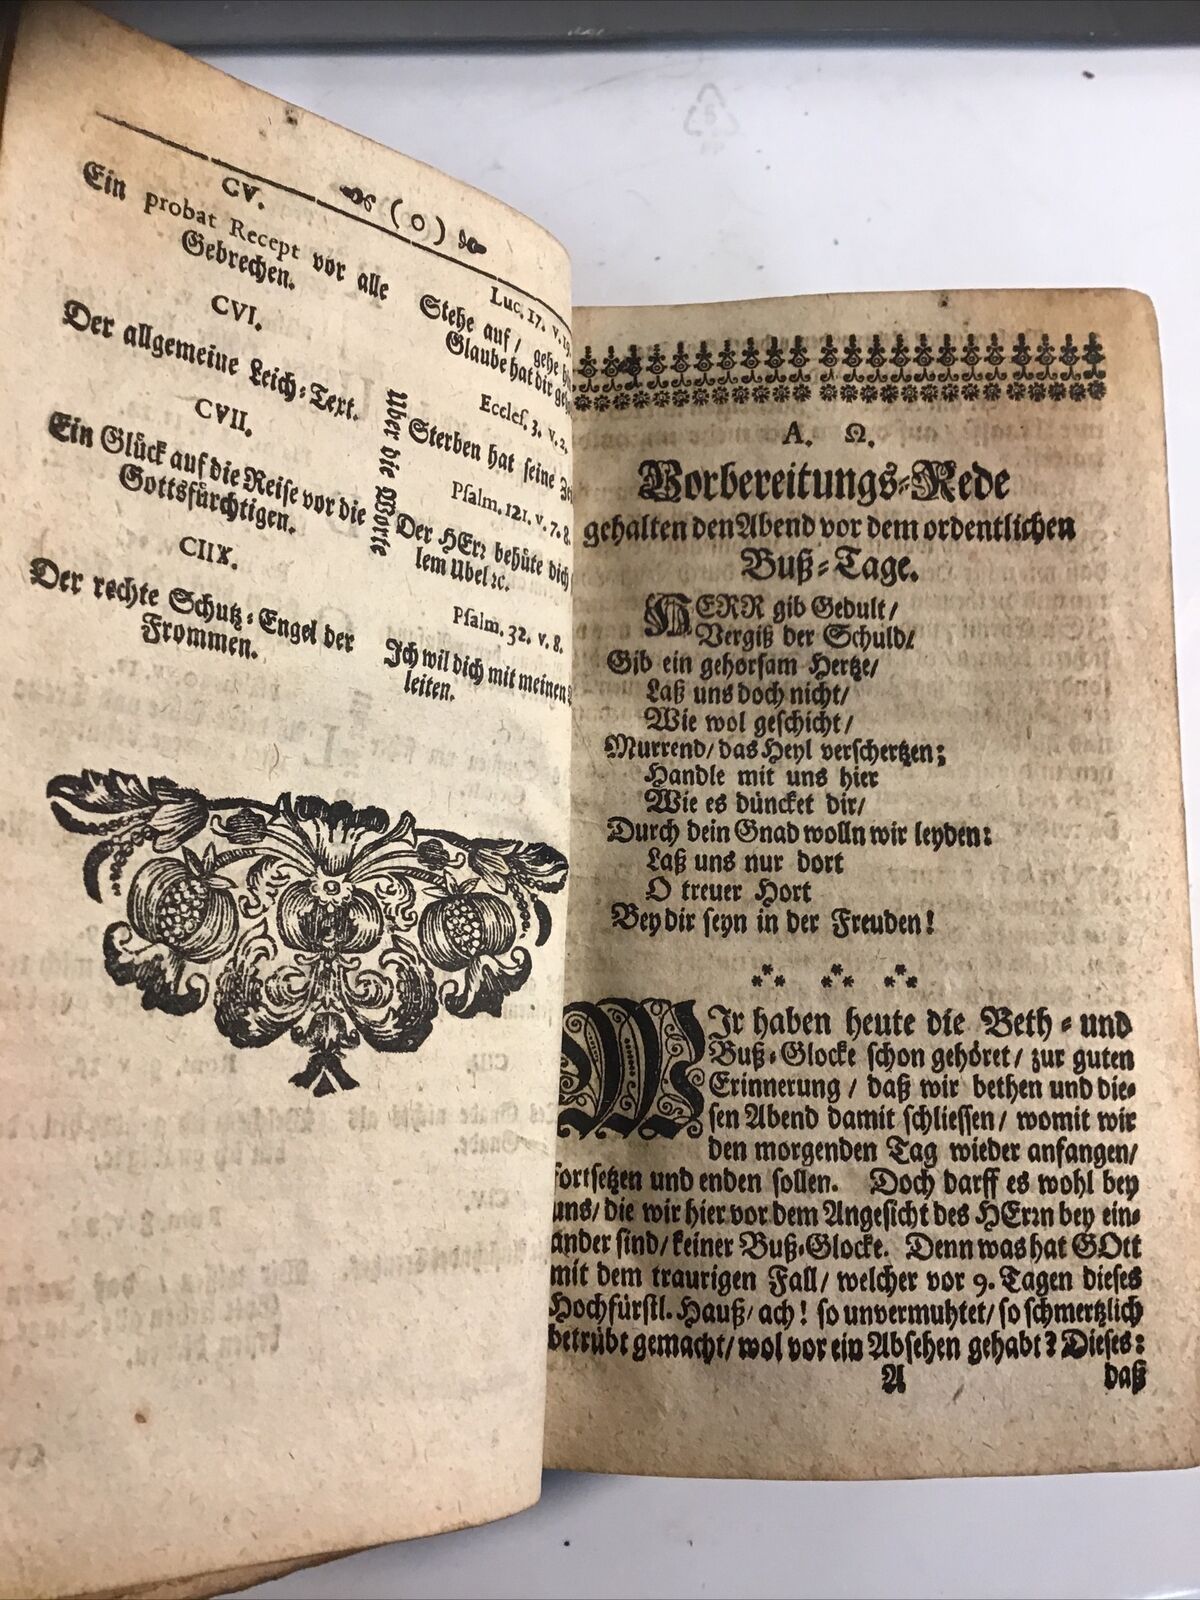 ( o )
CV.
Ein probat Recept vor alle
Gebrechen.
CVI.
Der allgemeine Leich-Text.
CVII.
Ein Glück auf die Reise vor die
Gottsfürchtigen.
CIIX.
Der rechte Schutz-Engel der
Frommen.
Uber die Worte
Luc. 17. v. 19.
Stehe auf/ gehe
Glaube hat dir
Eccles. 3. v. 2.
Sterben hat seine
Psalm. 121. v. 7. 8.
Der HErr behüte dich
lem Ubel ꝛc.
Psalm. 32. v. 8.
Ich wil dich mit meinen
leiten.
A. Ω.
Vorbereitungs-Rede
gehalten den Abend vor dem ordentlichen
Buß-Tage.
HERR gib Gedult/
Vergiß der Schuld/
Gib ein gehorsam Hertze/
Laß uns doch nicht/
Wie wol geschicht/
Murrend/ das Heyl verschertzen;
Handle mit uns hier
Wie es düncket dir/
Durch dein Gnad wolln wir leyden:
Laß uns nur dort
O treuer Hort
Bey dir seyn in der Freuden!
WIr haben heute die Beth- und
Buß-Glocke schon gehöret/ zur guten
Erinnerung/ daß wir bethen und die-
sen Abend damit schliessen/ womit wir
den morgenden Tag wieder anfangen/
fortsetzen und enden sollen. Doch darff es wohl bey
uns/ die wir hier vor dem Angesicht des HErrn bey ein-
ander sind/ keiner Buß-Glocke. Denn was hat GOtt
mit dem traurigen Fall/ welcher vor 9. Tagen dieses
Hochfürstl. Hauß/ ach! so unvermuhtet/ so schmertzlich
betrübt gemacht/ wol vor ein Absehen gehabt? Dieses:
A
daß